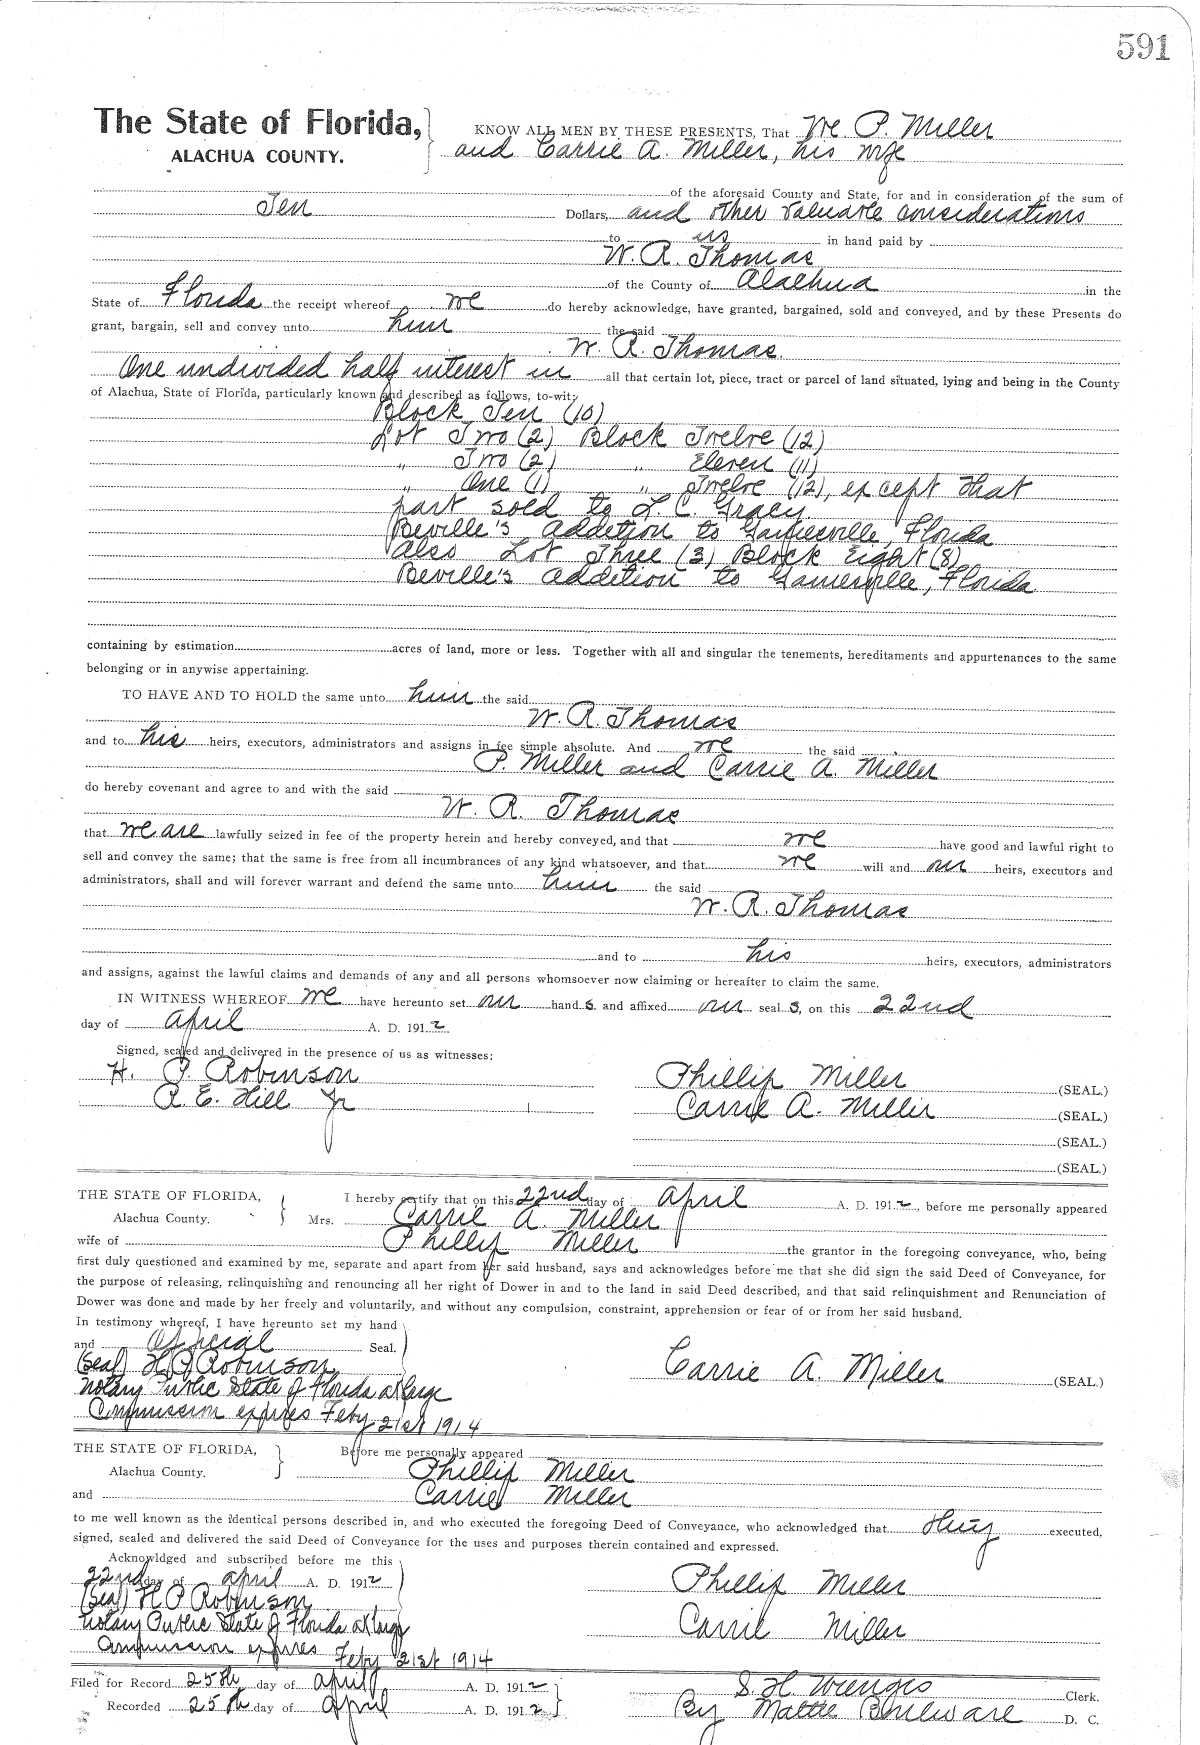 591
The State of Florida, KNOW ALL MEN BY THESE PRESENTS, That We P. Miller
ALACHUA COUNTY. and Carrie A. Miller, his wife
of the aforesaid County and State, for and in consideration of the sum of
Ten Dollars, and other valuable considerations
to us in hand paid by
W. R. Thomas
of the County of Alachua in the
State of Florida the receipt whereof we do hereby acknowledge, have granted, bargained, sold and conveyed, and by these Presents do
grant, bargain, sell and convey unto him the said
W. R. Thomas.
One undivided half interest in all that certain lot, piece, tract or parcel of land situated, lying and being in the County
of Alachua, State of Florida, particularly known and described as follows, to-wit:
Block Ten (10)
Lot Two (2) Block Twelve (12)
" Two (2) " Eleven (11)
" One (1) " Twelve (12), except that
part sold to L. C. Gracy
Beville's addition to Gainesville, Florida
also Lot Three (3) Block Eight (8)
Beville's addition to Gainesville, Florida
containing by estimation acres of land, more or less. Together with all and singular the tenements, hereditaments and appurtenances to the same
belonging or in anywise appertaining.
TO HAVE AND TO HOLD the same unto him the said
W. R. Thomas
and to his heirs, executors, administrators and assigns in fee simple absolute. And we the said
P. Miller and Carrie A. Miller
do hereby covenant and agree to and with the said
W. R. Thomas
that we are lawfully seized in fee of the property herein and hereby conveyed, and that we have good and lawful right to
sell and convey the same; that the same is free from all incumbrances of any kind whatsoever, and that we will and our heirs, executors and
administrators, shall and will forever warrant and defend the same unto him the said
W. R. Thomas
and to his heirs, executors, administrators
and assigns, against the lawful claims and demands of any and all persons whomsoever now claiming or hereafter to claim the same.
IN WITNESS WHEREOF we have hereunto set our hand s and affixed our seal s, on this 22nd
day of April A. D. 1912.
Signed, sealed and delivered in the presence of us as witnesses:
H. P. Robinson Phillip Miller (SEAL.)
R. E. Hill Jr Carrie A. Miller (SEAL.)
(SEAL.)
(SEAL.)
THE STATE OF FLORIDA, I hereby certify that on this 22nd day of April A. D. 1912, before me personally appeared
Alachua County. Mrs. Carrie A. Miller
wife of Phillip Miller the grantor in the foregoing conveyance, who, being
first duly questioned and examined by me, separate and apart from her said husband, says and acknowledges before me that she did sign the said Deed of Conveyance, for
the purpose of releasing, relinquishing and renouncing all her right of Dower in and to the land in said Deed described, and that said relinquishment and Renunciation of
Dower was done and made by her freely and voluntarily, and without any compulsion, constraint, apprehension or fear of or from her said husband.
In testimony whereof, I have hereunto set my hand
and official Seal.
(Seal) H P Robinson Carrie A. Miller (SEAL.)
Notary Public State of Florida at large
Commission expires Feby 21st 1914
THE STATE OF FLORIDA, Before me personally appeared
Alachua County. Phillip Miller
and Carrie Miller
to me well known as the identical persons described in, and who executed the foregoing Deed of Conveyance, who acknowledged that they executed,
signed, sealed and delivered the said Deed of Conveyance for the uses and purposes therein contained and expressed.
Acknowldged and subscribed before me this
22nd day of April A. D. 1912 Phillip Miller
(Seal) H P Robinson
Notary Public State of Florida at large Carrie Miller
Commission expires Feby 21st 1914
Filed for Record 25th day of April A. D. 1912 S. H. Wienges Clerk.
Recorded 25th day of April A. D. 1912 By Mattie Boulware D. C.